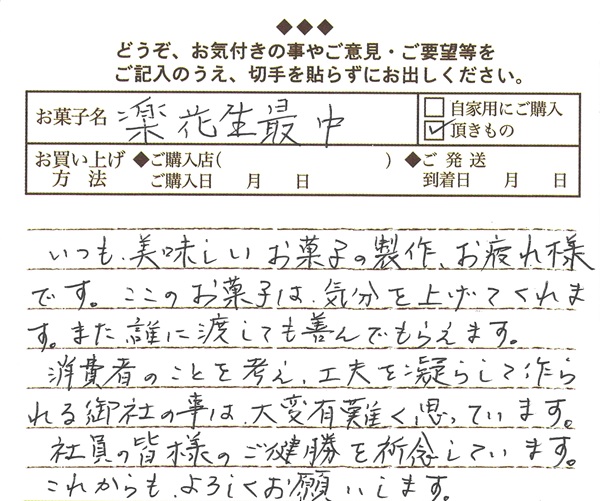 ◆◆◆
どうぞ、お気付きの事やご意見・ご要望等を
ご記入のうえ、切手を貼らずにお出しください。
お菓子名 楽花生最中 □自家用にご購入
☑頂きもの
お買い上げ ◆ご購入店( ) ◆ご発送
方法 ご購入日 月 日 到着日 月 日
いつも、美味しいお菓子の製作、お疲れ様
です。ここのお菓子は、気分を上げてくれま
す。また誰に渡しても善んでもらえます。
消費者のことを考え、工夫を凝らして作ら
れる御社の事は、大変有難く思っています。
社員の皆様のご健勝を祈念しています。
これからも、よろしくお願いします。